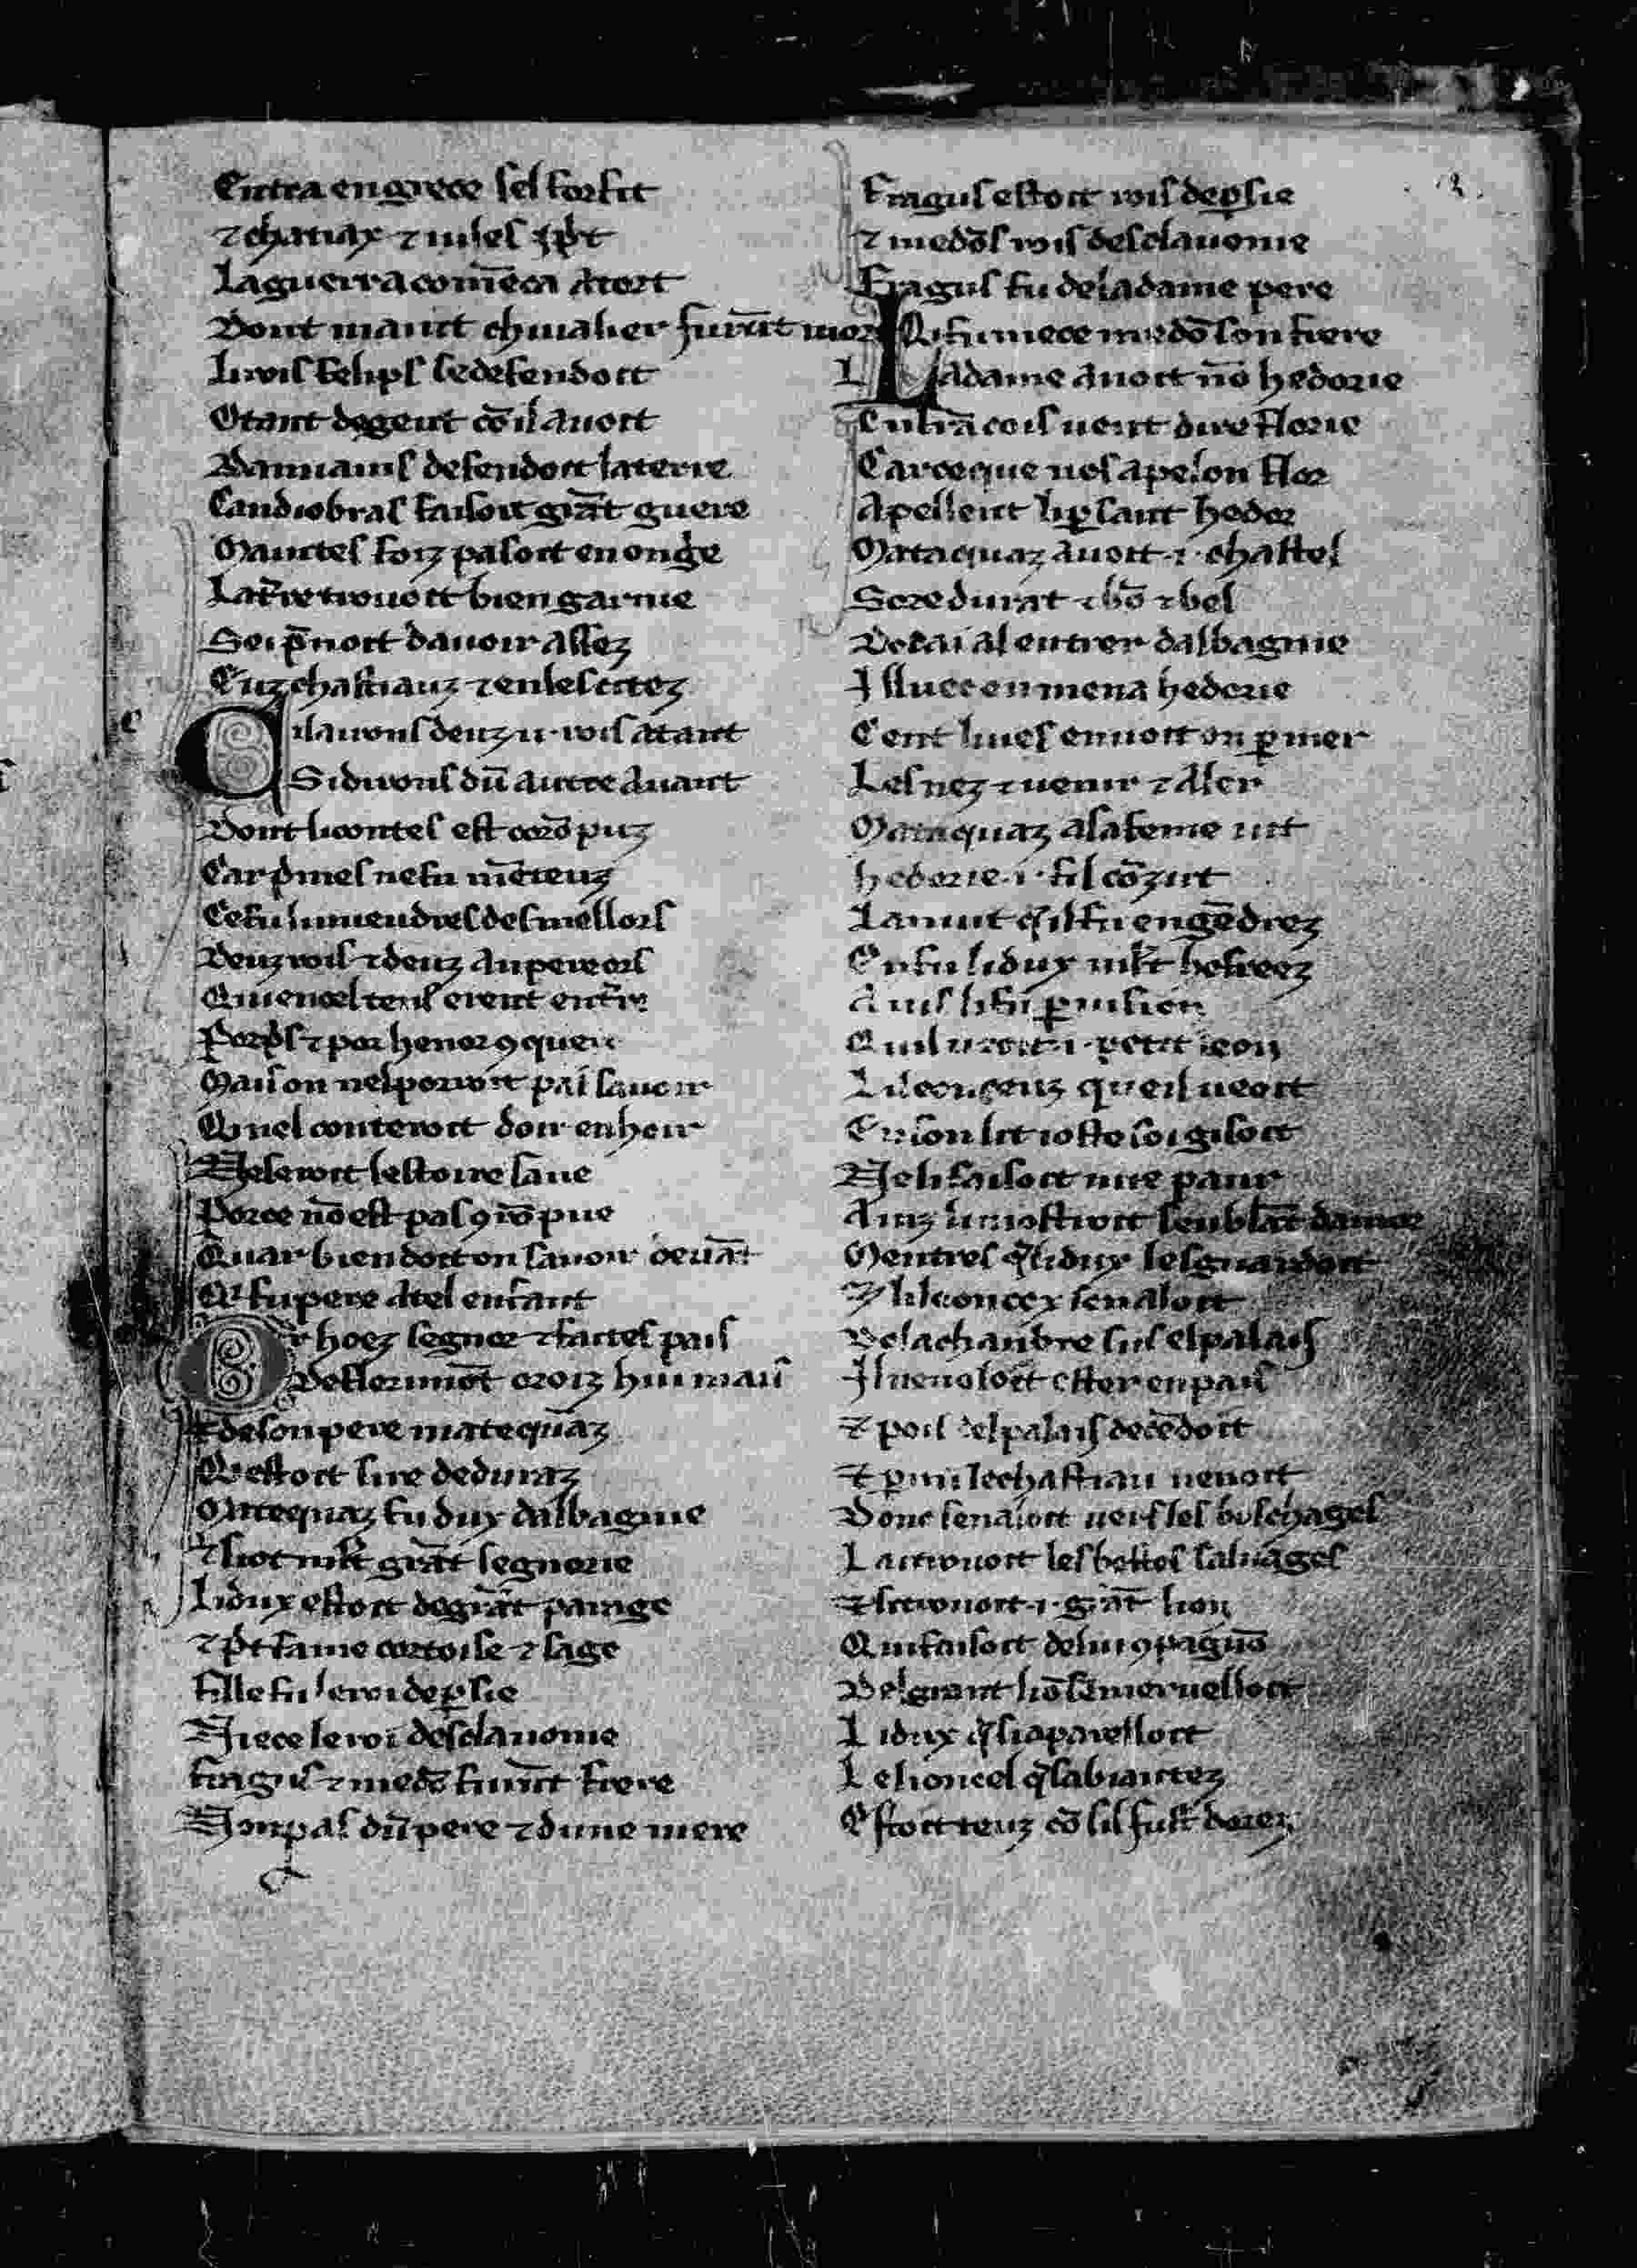 Entra en grece sel forfit
⁊ chatiax ⁊ uiles ꝯp̃t
La guerra com̃eca a tort
Dont maint chiualier furẽt mort
Li rois felips se defendoit
O tant de gent cõ il auoit
Damians defendoit la terre
Candiobras faisoit grãt guere
Maintes foiz pasoit en ongͥe
La tͬre trouoit bien garnie
Sei p̃noit dauoir assez
Enz chastiauz ⁊ en les citez
Cil auons deuz ·ii· rois atant
Si dirons dũ autre auant
Dont li contes est corõpuz
Car p̱mes ne fu mẽteuz
Ce fu li mendres des mellors
Deuz rois ⁊ deuz anpereors
Qui en cel tens erent entͬe
Por pͥs ⁊ por henor ꝯquerre
Mais on nel poroit pas sauoir
Qui nel conteroit doir en hoir
Ne seroit lestoire saue
Por ce nõ est pas ꝯrõpue
Quar bien doit on sauoir deuãt
Qͥ fu pere a tel enfant
Or hoez segnor ⁊ faites pais
De florimõt oroiz hui mais
Et de son pere matequãz
Qͥ estoit sire de duraz
Matequaz fu dux dalbagnie
⁊ si ot ml̃t grãt segnorie
Li dux estoit de grãt parage
⁊ p̃t fame cortoise ⁊ sage
Fille fu le roi de p̱sie
Niece le roi desclauonie
Fragus ⁊ medõ furẽt frere
Non pas dũ pere ⁊ dune mere
Fragus estoit rois de p̱sie
⁊ medõs rois desclauonie
Fragus fu de la dame pere
Qͥ fu niece medõ son frere
La dame auoit nõ hedorie
En frãcois ueut dire florie
Car ce que nos apelon flor
Apellent li p̱sant hedor
Mataquaz auoit ·i· chastel
Sor e durat ⁊ bõ ⁊ bel
De cai al entrer dalbagnie
Illuec en mena hedorie
Cent liues en uoit on p̱ mer
Les nez ⁊ uenir ⁊ aler
Mataquaz a sa feme iut
hedorie ·i· fil cõzut
La nuit qͥl fu engẽdrez
En fu li dux ml̃t hefreez
A uis li fu p̱ uision
Quil ueoit ·i· petit leon
Li leonceuz que il ueoit
En son lit ioste soi gisoit
Ne li faisoit nule paur
Ainz li mostroit senblãt damor
Mentres qͥ li dux lesguardoit
⁊ li leoncex sen aloit
De la chanbre sus el palais
Il ne uoloit ester en pais
⁊ pois del palais decẽdoit
⁊ p̱mi le chastiau uenoit
Donc sen aloit uers les boschages
La trouoit les bestes saluages
⁊ si trouoit ·i· grãt lion
Qui faisoit de lui ꝯpagnõ
Del grant liõ se meruelloit
Li dux qͥ li aparelloit
Le lioncel qͥ sa biautez
Estoit teuz cõ sil fust dorez